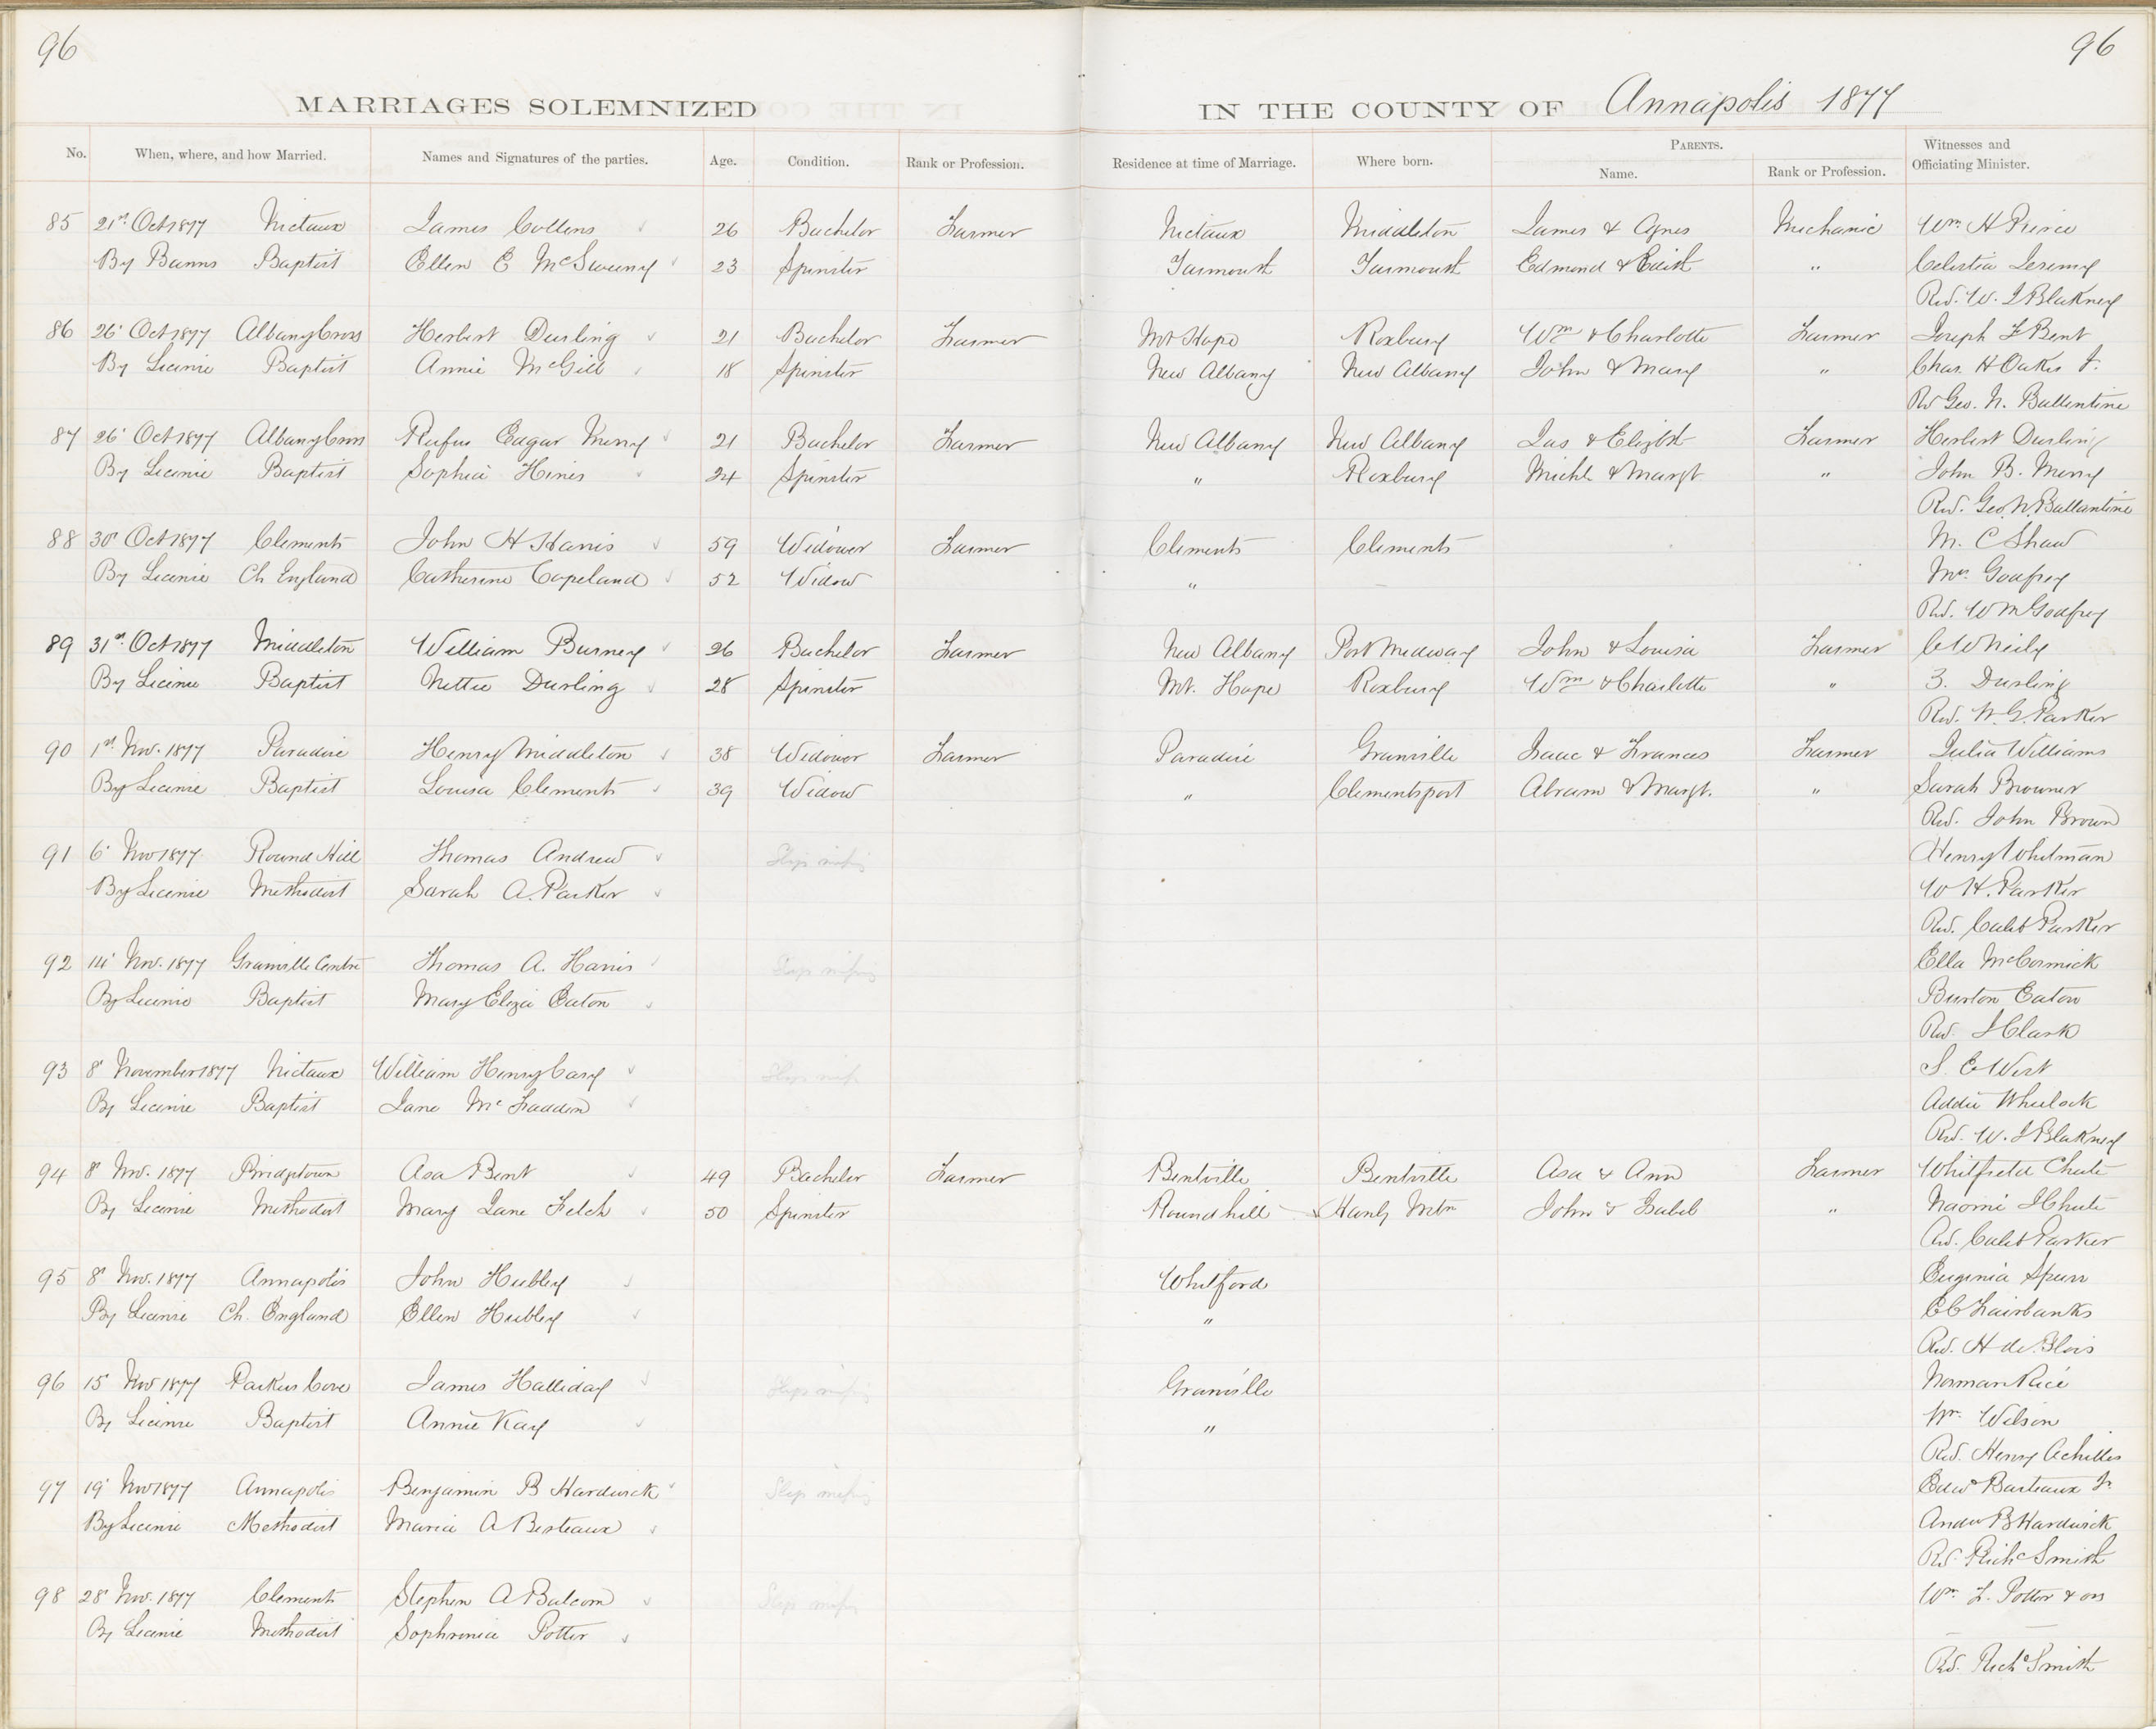 96
96
MARRIAGES SOLEMNIZED IN THE COUNTY OF Annapolis 1877
No. When, where, and how Married. Names and Signatures of the parties. Age. Condition. Rank or Profession. Residence at time of Marriage. Where born. PARENTS. Name. Rank or Profession. Witnesses and Officiating Minister.
85 21st Oct 1877 Nictaux James Collens 26 Bachelor Farmer Nictaux Middleton James & Agnes Mechanic Wm H
By Banns Baptist Ellen E McSweeny 23 Spinster Edmond & "
Rev. W. J Blakney
86 26' Oct 1877 Albany Cross Herbert Durling 21 Bachelor Farmer Mt Hope Roxbury Wm & Charlotte Farmer Joseph F Bent
By Licence Baptist Annie McGill 18 Spinster New Albany New Albany John & Mary " Chas. H Oakes Jr.
Rev Geo. N. Ballentine
87 26' Oct 1877 Albany Cross Rufus Edgar Merry 21 Bachelor Farmer New Albany New Albany Jas & Elizbt Farmer Herbert Durling
By Licence Baptist Sophia Hines 24 Spinster " Roxbury Michl & Margt " John B. Merry
Rev. Geo. N. Ballantine
88 30' Oct 1877 Clements John H Harris 59 Widower Farmer Clements Clements M. C Shaw
By Licence Ch England Catherine Copeland 52 Widow " — Mrs. Godfrey
Rev. Wm Godfrey
89 31st Oct 1877 Middleton William Burney 26 Bachelor Farmer New Albany Port Medway John & Louisa Farmer C W Neily
By Licence Baptist Nettie Durling 28 Spinster Mt. Hope Roxbury Wm & Charlotte " Durling
Rev. W. G. Parker
90 1st Nov. 1877 Paradise Henry Middleton 38 Widower Farmer Paradise Granville Isaac & Frances Farmer Julia Williams
By Licence Baptist Louisa Clements 39 Widow " Clementsport Abram & Margt. " Sarah
Rev. John Brown
91 6' Nov 1877 Round Hill Thomas Andrew Slip missing Henry Whitman
By Licence Methodist Sarah A. Parker W H. Parker
Rev. Caleb Parker
92 14' Nov. 1877 Granville Centre Thomas A. Harris Slip missing Ella McCormick
By Licence Baptist Mary Eliza Eaton Burton Eaton
Rev. J Clark
93 8' November 1877 Nictaux William Henry Cary Slip missing S. E West
By Licence Baptist Jane McFadden Addie Wheelock
Rev. W. J Blakney
94 8' Nov. 1877 Bridgetown Asa Bent 49 Bachelor Farmer Bentville Bentville Asa & Ann Farmer Whitfield Chute
By Licence Methodist Mary Jane Felch 50 Spinster Roundhill Hanly Mtn John & Isabel " Naomi J Chute
Rev. Caleb Parker
95 8' Nov. 1877 Annapolis John Hubley Whitford Euginia Spurr
By Licence Ch. England Ellen Hubley " E C Fairbanks
Rev. H de Blois
96 15' Nov 1877 Parkers Cove James Halliday Slip missing Granville Norman Rice
By Licence Baptist Annie Kay " Wm. Wilson
Rev. Henry Achilles
97 19' Nov 1877 Annapolis Benjamin B Hardwick Slip missing Edwd Barteaux Jr
By Licence Methodist Maria A Berteaux Andw B Hardwick
Rev Richd Smith
98 28' Nov. 1877 Clements Stephen A Balcom Slip missing Wm. L. Potter & ors
By Licence Methodist Sophronia Potter — —
Rev. Richd Smith